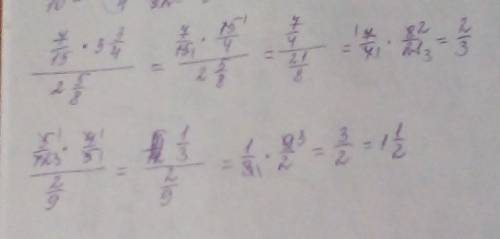 (7/15 · 3 3/4) / (2 5/8) = (7/15₁ · 15¹/4) / (2 5/8) = (7/4) / (21/8) = ¹7/4₁ · 8²/21₃ = 2/3
(5¹/12₃ · 4¹/5¹) / (2/9) = (1/3) / (2/9) = 1/3₁ · 9³/2 = 3/2 = 1 1/2